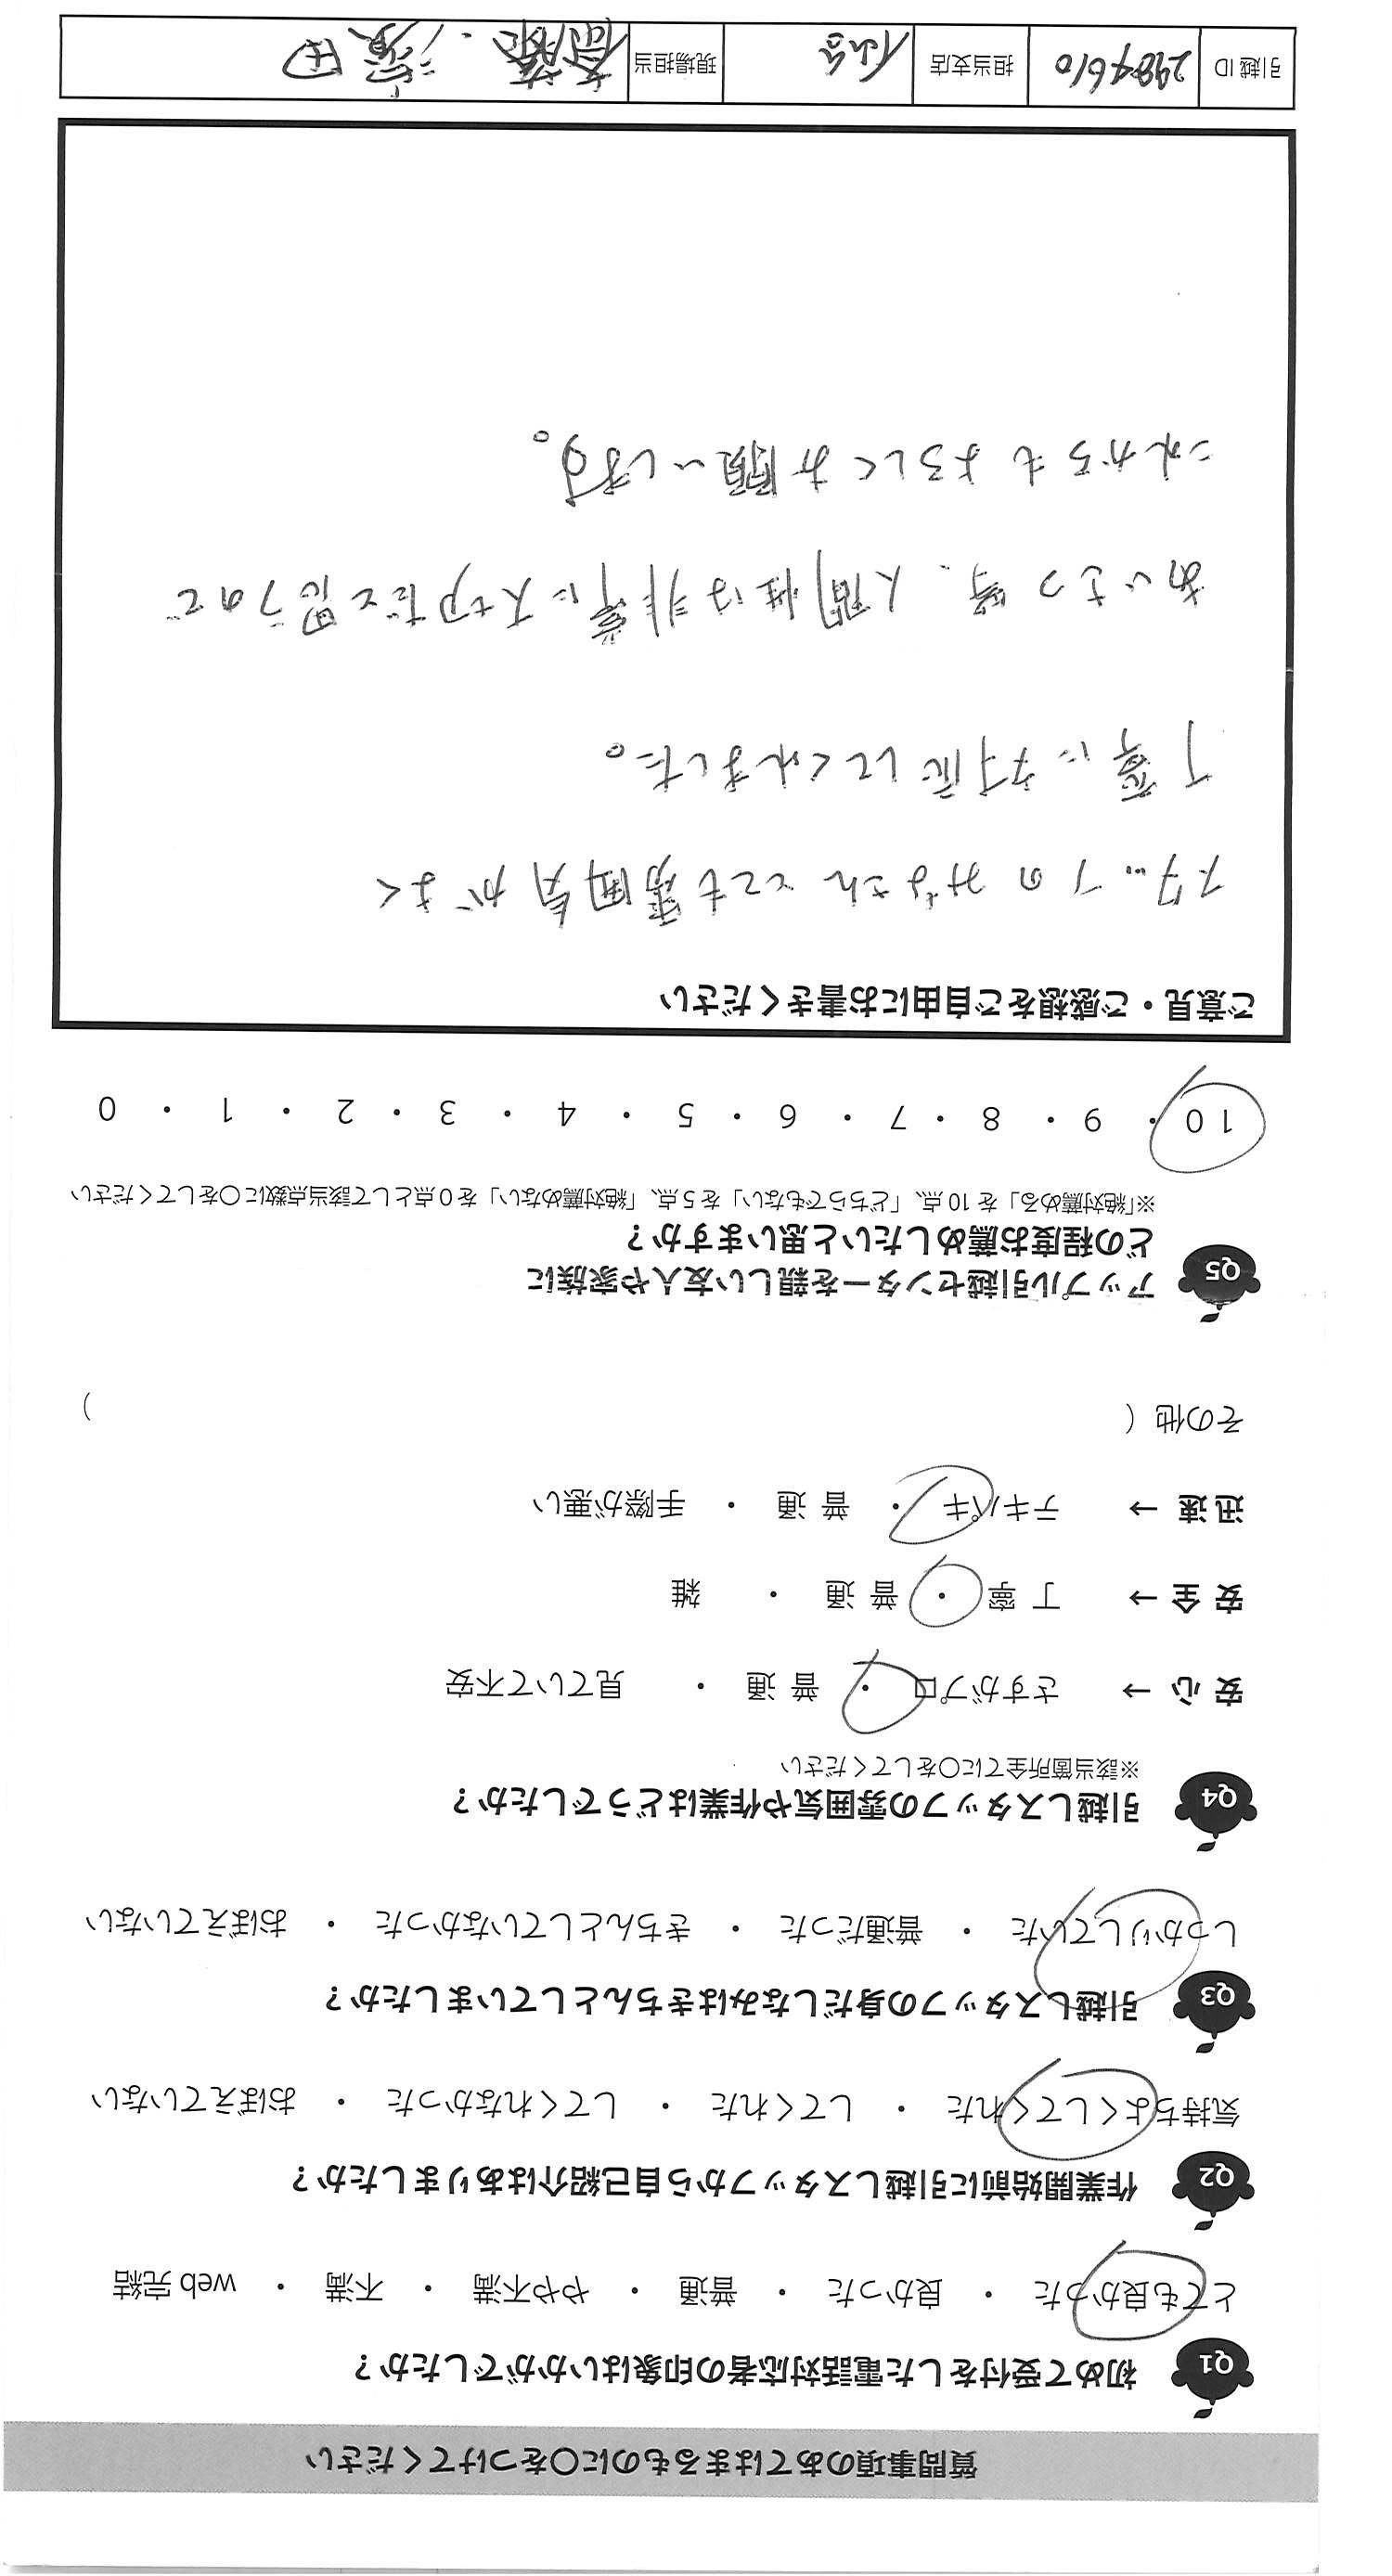 質問事項のあてはまるものに〇をつけてください
Q1 初めて受付をした電話対応者の印象はいかがでしたか？
とても良かった ・ 良かった ・ 普通 ・ やや不満 ・ 不満 ・ web 完結
Q2 作業開始前に引越しスタッフから自己紹介はありましたか？
気持ちよくしてくれた ・ してくれた ・ してくれなかった ・ おぼえていない
Q3 引越しスタッフの身だしなみはきちんとしていましたか？
しっかりしていた ・ 普通だった ・ きちんとしていなかった ・ おぼえていない
Q4 引越しスタッフの雰囲気や作業はどうでしたか？
※該当箇所全てに〇をしてください
安 心 → さすがプロ ・ 普 通 ・ 見ていて不安
安 全 → 丁 寧 ・ 普 通 ・ 雑
迅 速 → テキパキ ・ 普 通 ・ 手際が悪い
その他（ ）
Q5 アップル引越センターを親しい友人や家族に
どの程度お薦めしたいと思いますか？
※「絶対薦める」を 10 点、「どちらでもない」を 5 点、「絶対薦めない」を 0 点として該当点数に〇をしてください
10 ・ 9 ・ 8 ・ 7 ・ 6 ・ 5 ・ 4 ・ 3 ・ 2 ・ 1 ・ 0
ご意見・ご感想をご自由にお書きください
スタッフのみなさんとても雰囲気がよく
丁寧に対応してくれました。
あいさつ等、人間性は非常に大切だと思うので
これからもよろしくお願いします。
引越 ID 2984610 担当支店 仙台 現場担当 斎藤・濱田